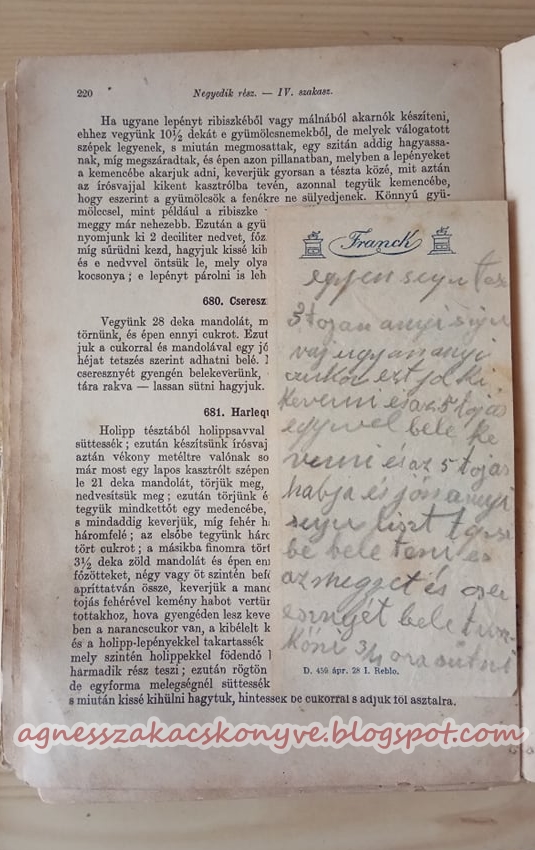 220 Negyedik rész. — IV. szakasz.
Ha ugyane lepényt ribiszkéből vagy málnából akarnók készíteni,
ehhez vegyünk 10½ dekát e gyümölcsnemekből, de melyek válogatott
szépek legyenek, s miután megmosattak, egy szitán addig hagyassa-
nak, míg megszáradtak, és épen azon pillanatban, melyben a lepényeket
a kemencébe akarjuk adni, keverjük gyorsan a tészta közé, mit aztán
az írósvajjal kikent kasztrólba tevén, azonnal tegyük kemencébe,
hogy eszerint a gyümölcsök a fenékre ne sülyedjenek. Könnyű gyü-
mölccsel, mint például a ribiszke
meggy már nehezebb. Ezután a gyü
nyomjunk ki 2 deciliter nedvet, főz
míg sűrüdni kezd, hagyjuk kissé kih
és e nedvvel öntsük le, mely olya
kocsonya; e lepényt párolni is leh
680. Cseresz
Vegyünk 28 deka mandolát, m
törnünk, és épen ennyi cukrot. Ezut
juk a cukorral és mandolával egy jó
héjat tetszés szerint adhatni belé.
cseresznyét gyengén belekeverünk,
tára rakva — lassan sütni hagyjuk.
681. Harlequ
Holipp tésztából holippsavval
süttessék; ezután készítsünk írósvaj
aztán vékony metéltre valónak so
már most egy lapos kasztrólt szépen
le 21 deka mandolát, törjük meg,
nedvesítsük meg; ezután törjünk é
tegyük mindkettőt egy medencébe,
s mindaddig keverjük, míg fehér h
háromfelé; az elsőbe tegyünk háro
tört cukrot; a másikba finomra tört
3½ deka zöld mandolát és épen enn
főzötteket, négy vagy öt szintén befő
apríttatván össze, keverjük a mand
tojás fehérével kemény habot vertün
tottakhoz, hova gyengéden lesz keve
ben a narancscukor van, a kibélelt k
és a holipp-lepényekkel takartassék
mely szintén holippekkel födendő l
harmadik rész teszi; ezután rögtön
de egyforma melegségnél süttessék
s miután kissé kihűlni hagytuk, hintessék be cukorral s adjuk föl asztalra.
Franck
egyen seyu tesz
3 tojan anyi seyu
vaj ugyan anyi
cukor ezt jol ki
keverni és az 5 tojas
egyivel bele ke
verni és az 5 tojas
habja és jön anyi
seyu liszt
be bele teni és
az megyet és cse
esznyét bele
3/4 ora sütni
D. 459 ápr. 28 I. Reblo.
agnesszakacskonyve.blogspot.com